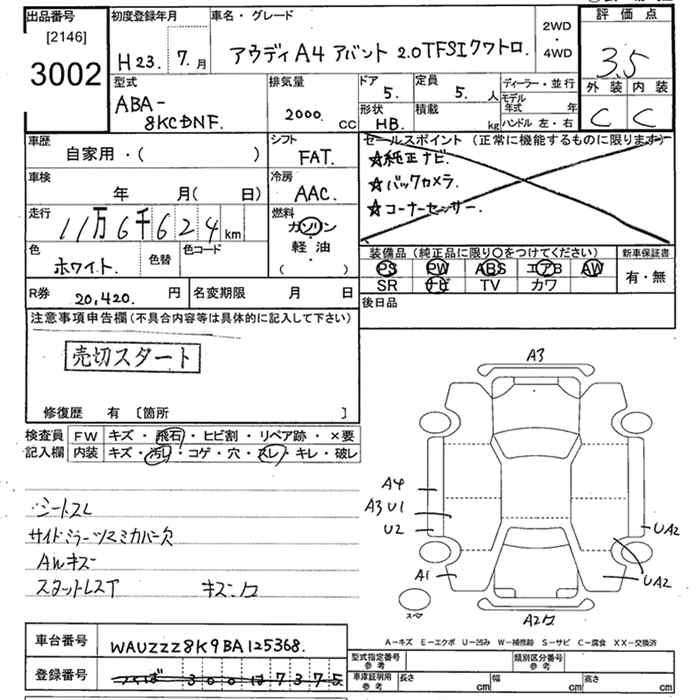 出品番号
[2146]
3002
初度登録年月
H23. 7.月
車名・グレード
アウディA4 アバント 2.0TFSIクワトロ.
2WD
・
4WD
評価点
3.5
外装 内装
C C
型式
ABA-
8KCDNF.
排気量
2000. CC
ドア
5.
定員
5. 人
形状
HB.
積載
kg
ディーラー・並行
モデル年式 年
ハンドル 左・右
車歴
自家用・( )
シフト
FAT.
セールスポイント (正常に機能するものに限ります)
☆純正ナビ.
☆バックカメラ.
☆コーナーセンサー.
車検
年 月( 日)
冷房
AAC.
走行
11万6千624km
燃料
ガソリン
・
軽油
・
( )
色
ホワイト.
色替
色コード
装備品 (純正品に限り〇をつけてください)
PS PW ABS エアB AW
SR ナビ TV カワ
新車保証書
有・無
R券 20,420. 円
名変期限 月 日
後日品
注意事項申告欄(不具合内容等は具体的に記入して下さい)
売切スタート
修復歴 有 〔箇所 〕
検査員
記入欄
FW キズ・飛石・ヒビ割・リペア跡・×要
内装 キズ・汚レ・コゲ・穴・スレ・キレ・破レ
シートスレ
サイドミラーツスミカバー欠
AWキズ
スタットレスT
A3
A4
A3 U1
U2
A1
UA2
UA2
スペア
A-キズ E-エクボ U-凹み W-補修跡 S-サビ C-腐食 XX-交換済
車台番号 WAUZZZ8K9BA125368.
登録番号 つくば 300 は 7375
型式指定番号
参考
類別区分番号
参考
車庫証明用
参考
長さ cm 幅 cm 高さ cm